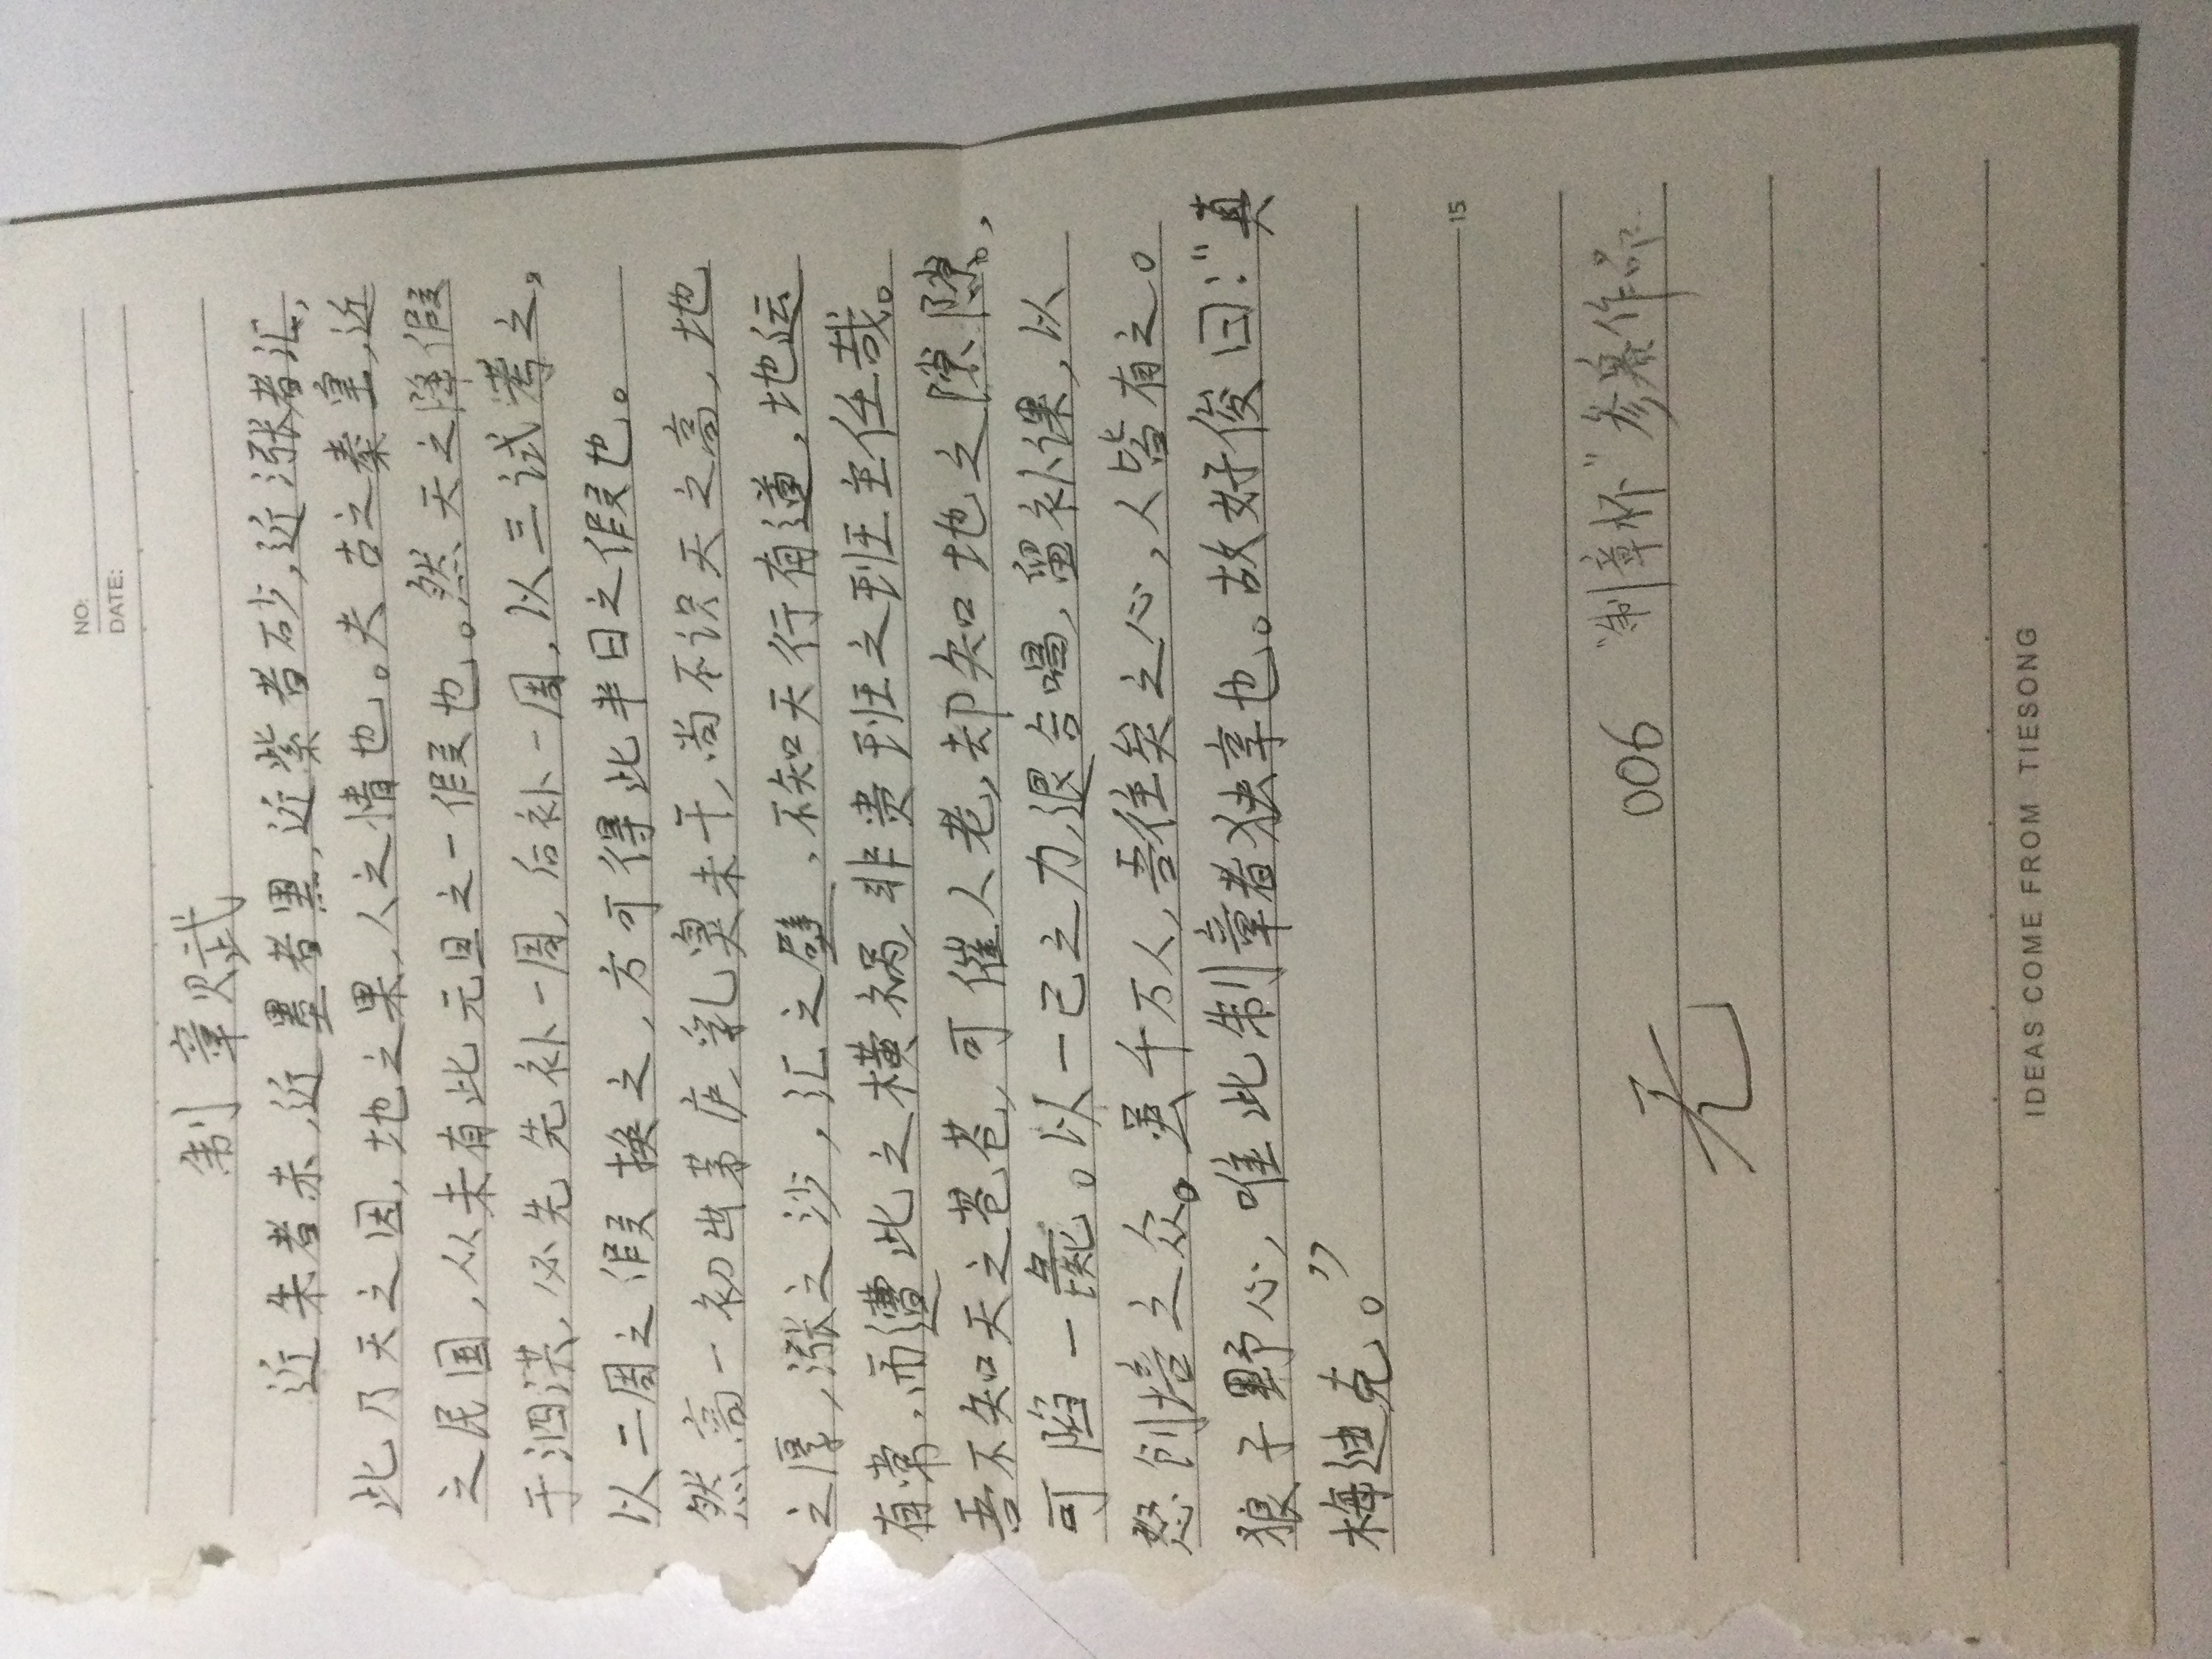 NO:
DATE:
制章赋
近朱者赤,近墨者黑,近紫者砂,近涨者汇,
此乃天之因,地之果,人之情也。夫古之秦皇,近
之民国,从未有此元旦之一假也。然天之降假
于泗洪,必先先补一周,后补一周,以三试考之,
以二周之假换之,方可得此半日之假也。
然高一初出茅庐,乳臭未干,尚不识天之高,地
之厚,涨之沙,汇之壁,不知天行有道,地运
有常,而遭此之横祸,非贵班之班主任哉。
吾不知天之苍苍,可催人老,却知地之隙隙,
可陷一彘。以一己之力,退合唱,留补课,以
怒创培之众。虽千万人,吾往矣之心,人皆有之。
狼子野心,唯此制章者独享也。故好俊曰:“真
梅迪克。”
15
006 “制章杯”参赛作品
无
IDEAS COME FROM TIESONG